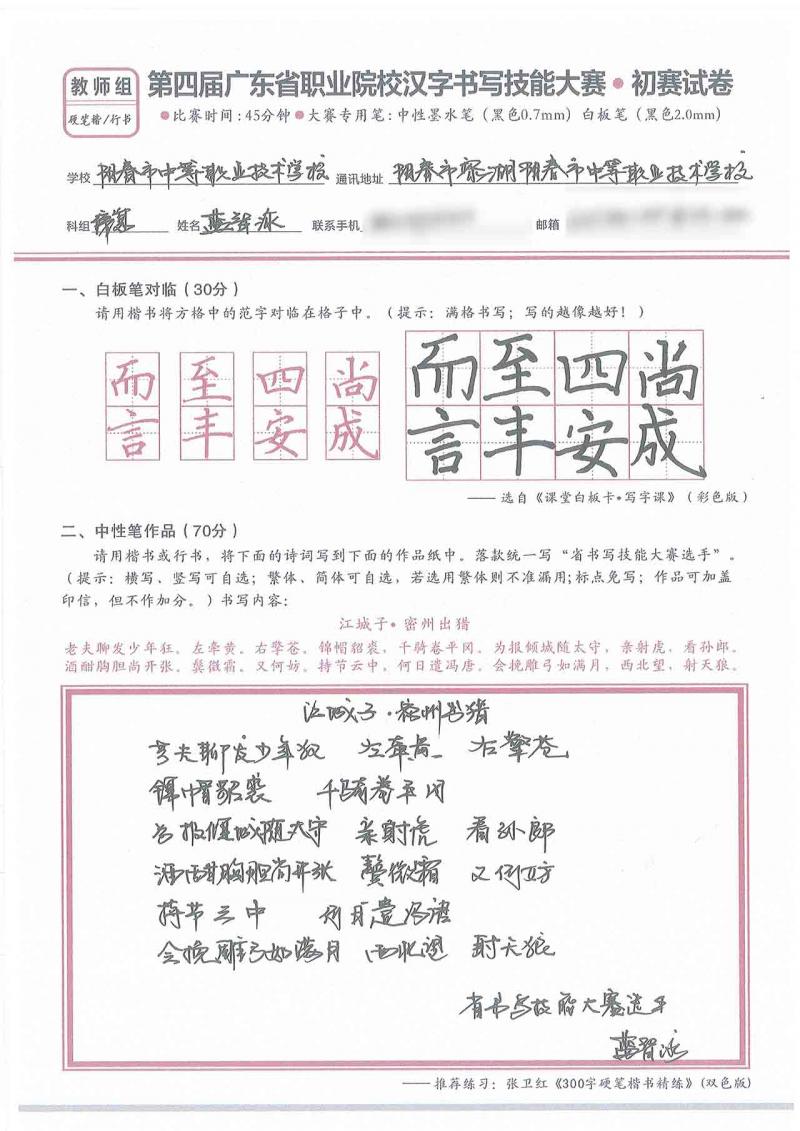 教师组
硬笔楷/行书
第四届广东省职业院校汉字书写技能大赛•初赛试卷
•比赛时间：45分钟•大赛专用笔：中性墨水笔（黑色0.7mm）白板笔（黑色2.0mm）
学校 阳春市中等职业技术学校 通讯地址 阳春市 湖阳春市中等职业技术学校
科组 姓名 蓝智泳 联系手机 邮箱
一、白板笔对临（30分）
请用楷书将方格中的范字对临在格子中。（提示：满格书写；写的越像越好！）
而 至 四 尚 而至四尚
言 丰 安 成 言丰安成
——选自《课堂白板卡•写字课》（彩色版）
二、中性笔作品（70分）
请用楷书或行书，将下面的诗词写到下面的作品纸中。落款统一写“省书写技能大赛选手”。
（提示：横写、竖写可自选；繁体、简体可自选，若选用繁体则不准漏用;标点免写；作品可加盖
印信，但不作加分。）书写内容：
江城子•密州出猎
老夫聊发少年狂。左牵黄。右擎苍。锦帽貂裘，千骑卷平冈。为报倾城随太守，亲射虎，看孙郎。
酒酣胸胆尚开张。鬓微霜。又何妨。持节云中，何日遣冯唐。会挽雕弓如满月，西北望，射天狼。
江城子·密州出猎
老夫聊发少年狂 左牵黄 右擎苍
锦帽貂裘 千骑卷平冈
为报倾城随太守 亲射虎 看孙郎
酒酣胸胆尚开张 鬓微霜 又何妨
持节云中 何日遣冯唐
会挽雕弓如满月 西北望 射天狼
省书写技能大赛选手
蓝智泳
——推荐练习：张卫红《300字硬笔楷书精练》（双色版）